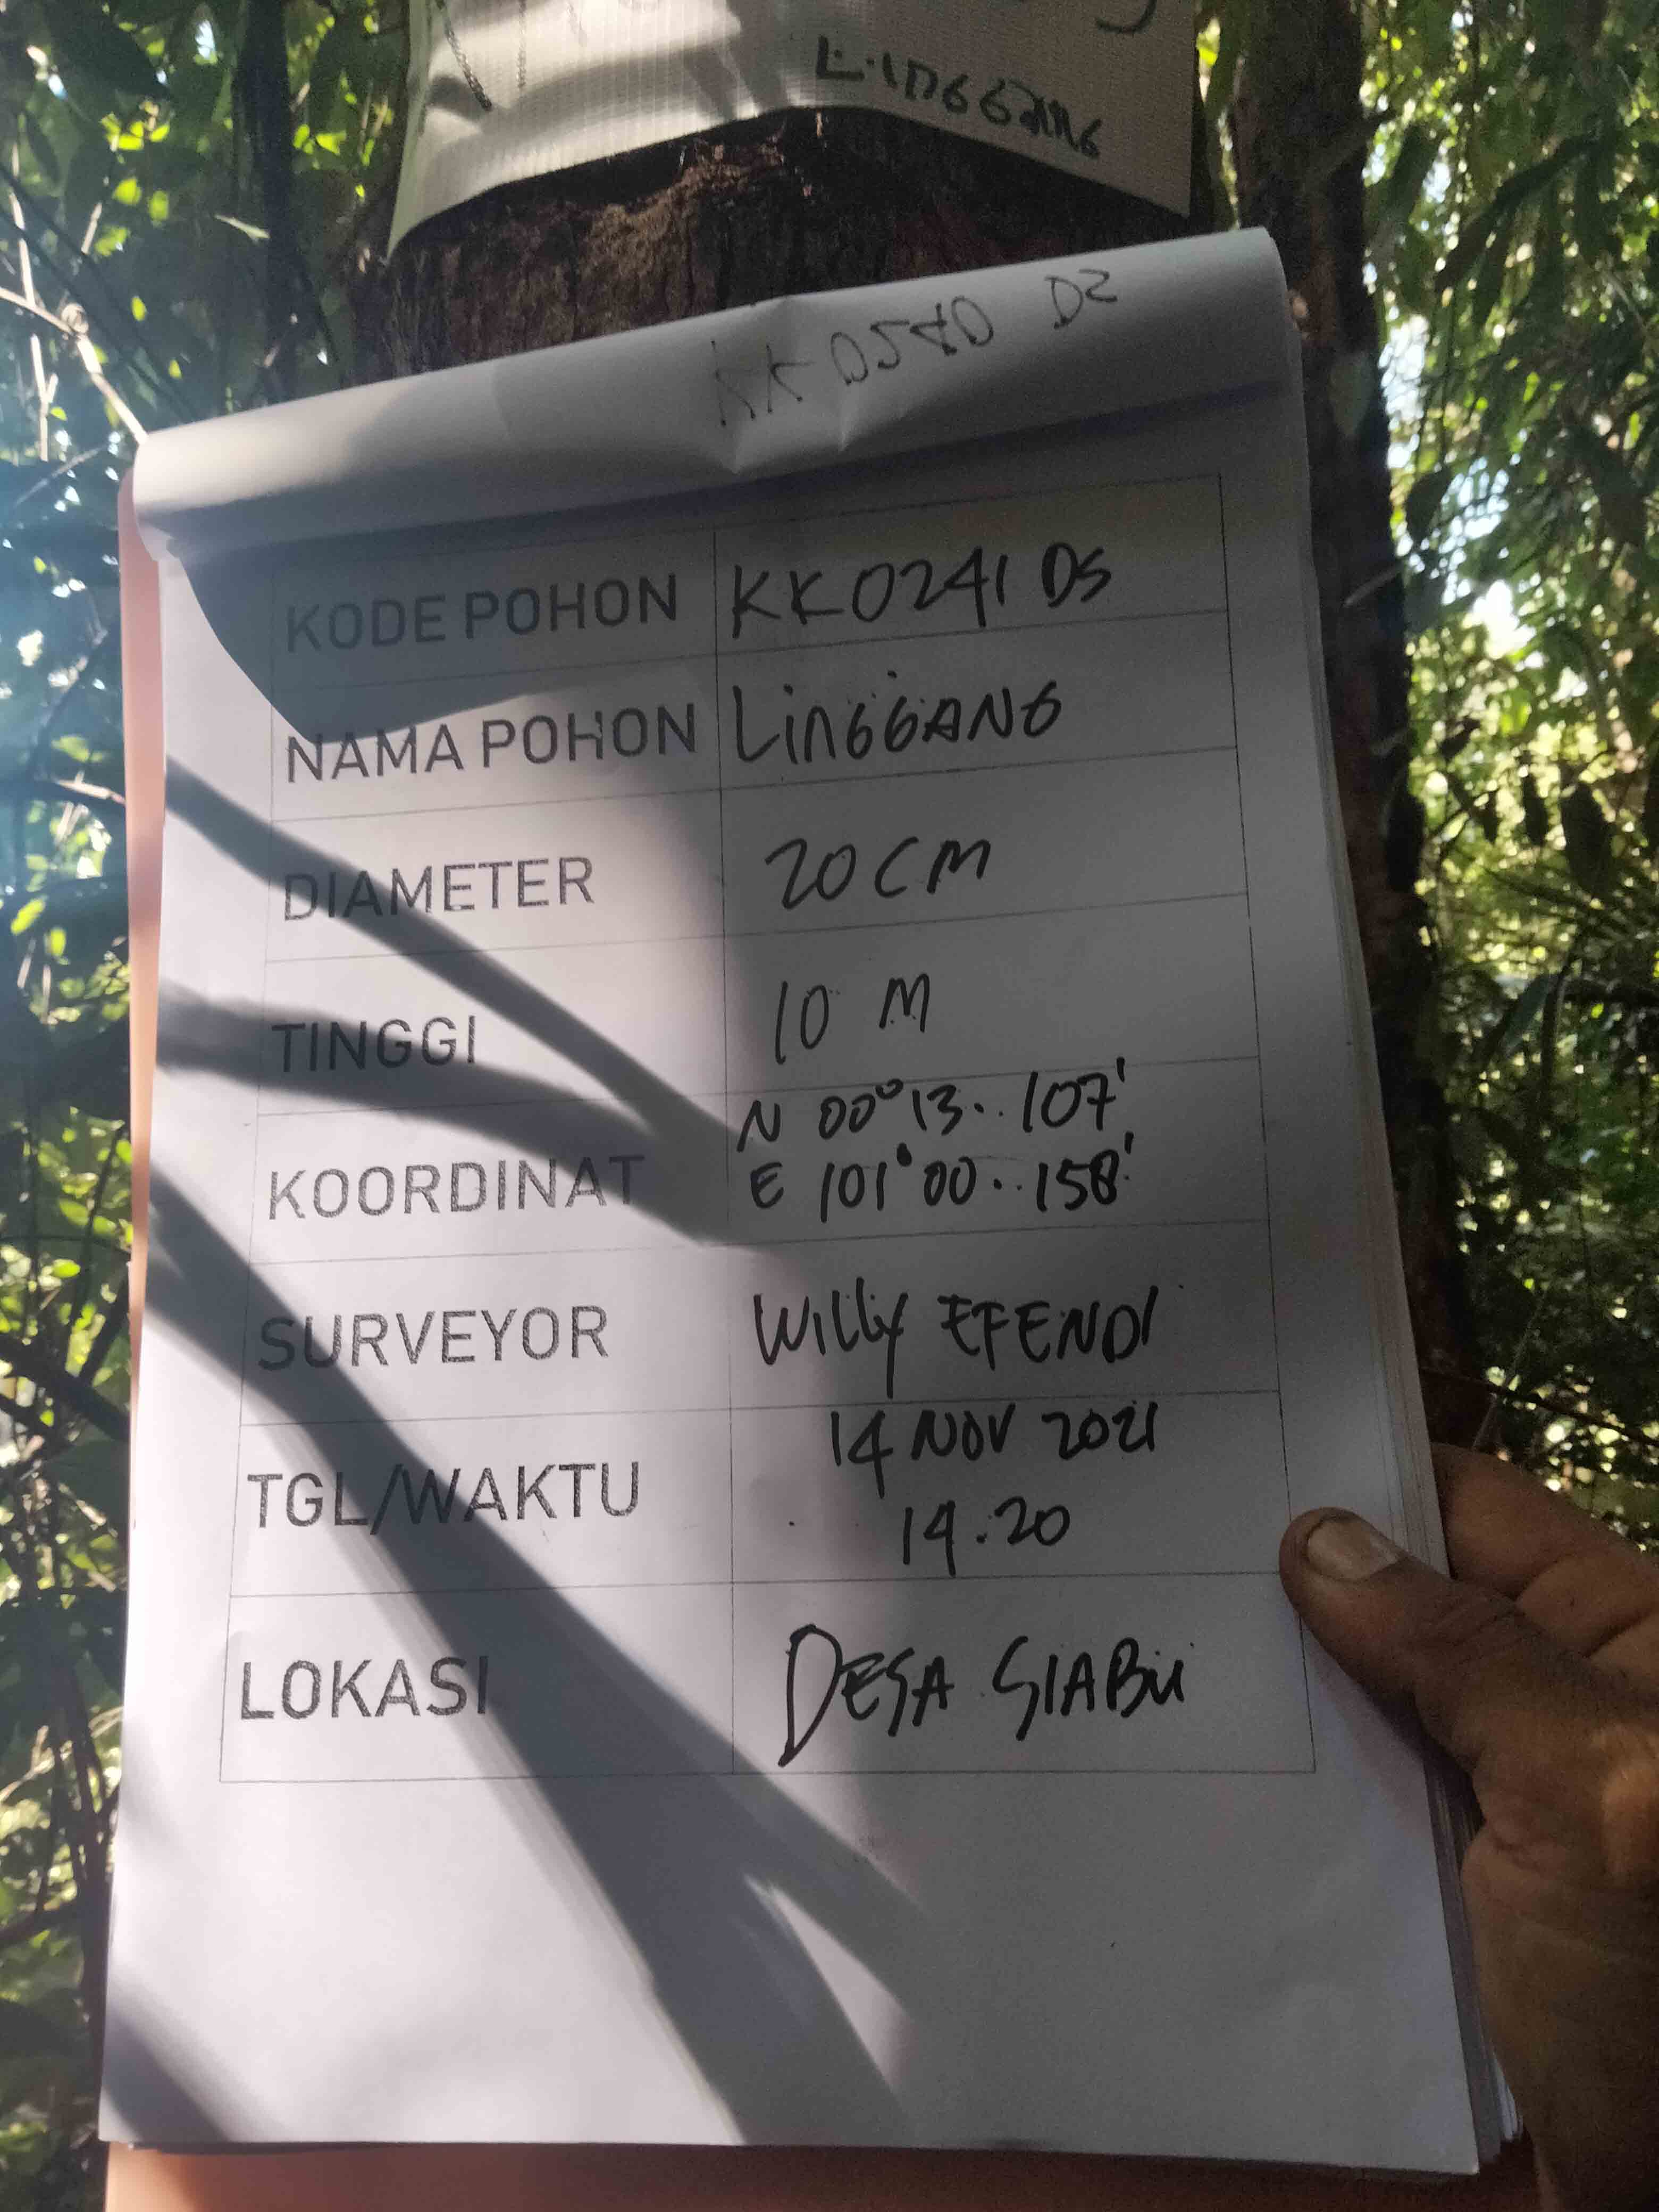 LINGGANG
KODE POHON KK0241 DS
NAMA POHON LiNGGANG
DIAMETER 20 CM
TINGGI 10 M
KOORDINAT N 00°13..107'
E 101°00..158'
SURVEYOR Willy EFENDI
TGL/WAKTU 14 NOV 2021
14.20
LOKASI DESA SIABU